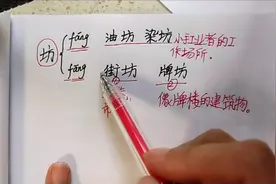 坊 fāng 油坊 染坊 小红业者的工
作场所.
fang 街坊 牌坊
② ②
像牌楼的建筑物。